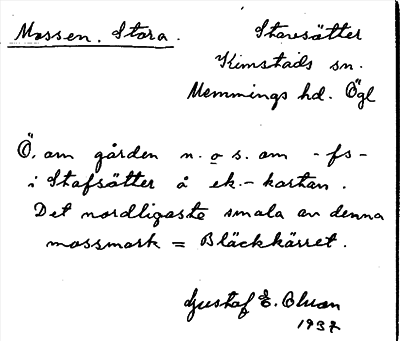 Mossen. Stora.
Stavsätter
Kimstads sn.
Memmings hd. Ögl
Ö. om gården n. o s. om -fs-
i Stafsätter å ek.-kartan.
Det nordligaste smala av denna
mossmark = Bläckkärret.
Gustaf E. Olson
1937